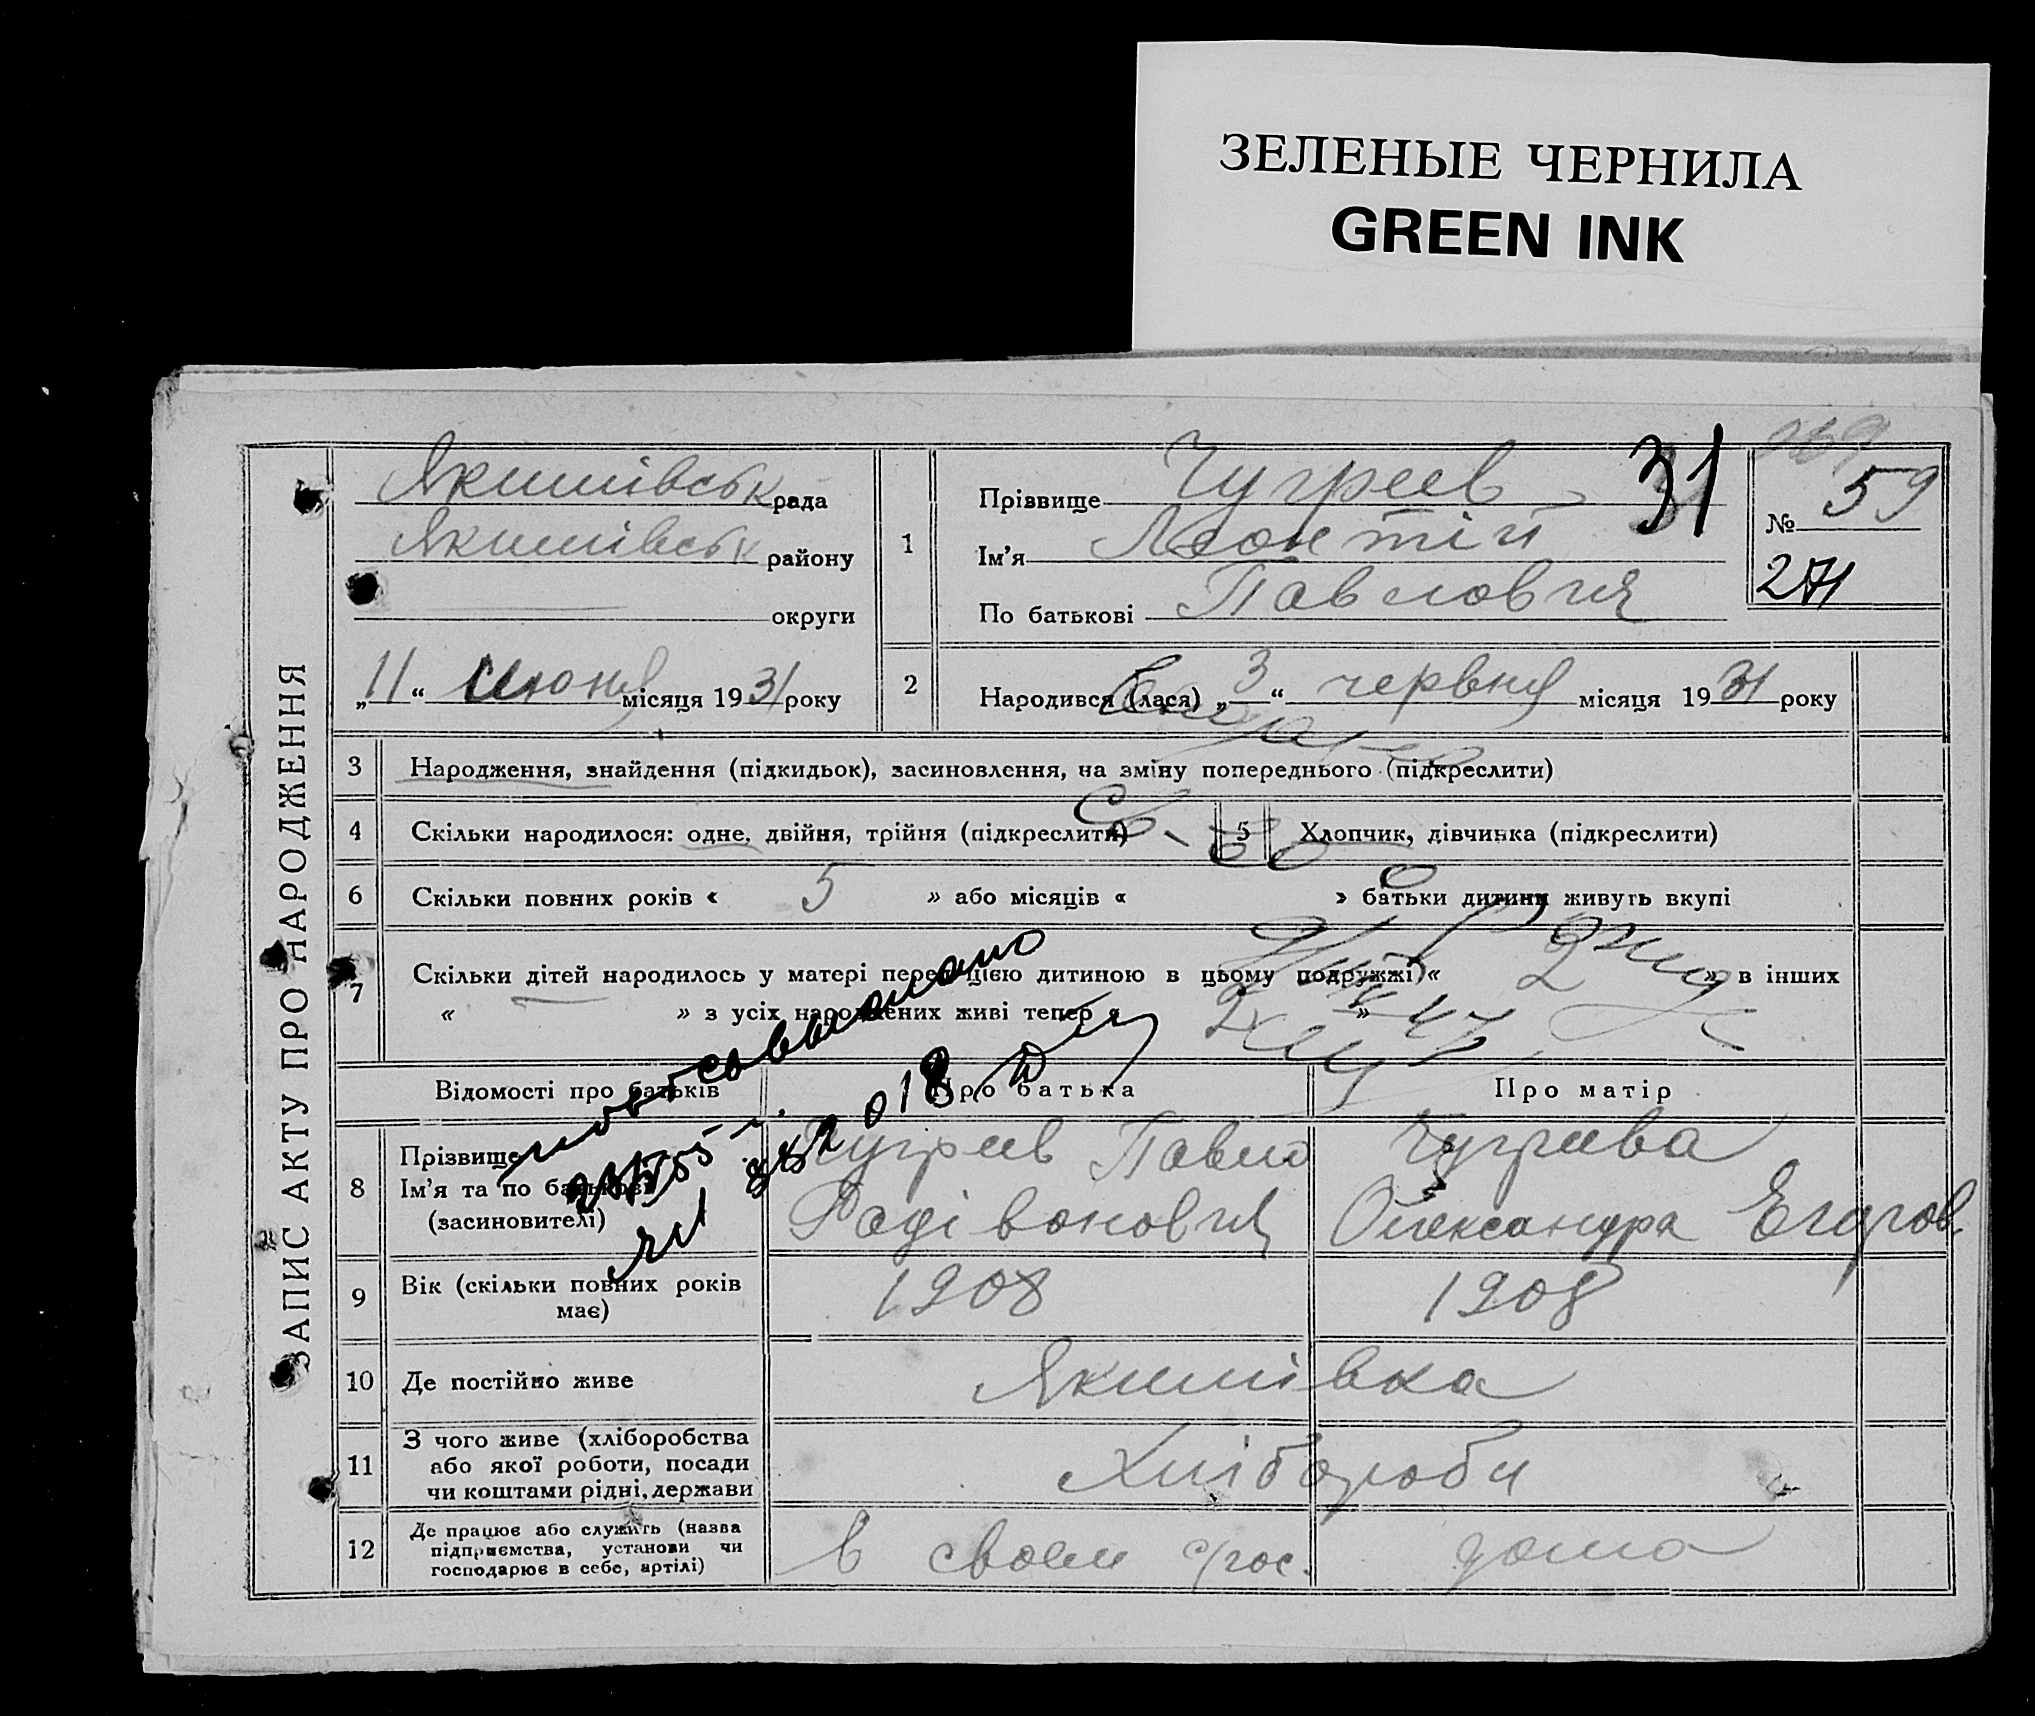 ЗЕЛЕНЫЕ ЧЕРНИЛА
GREEN INK
ЗАПИС АКТУ ПРО НАРОДЖЕННЯ
Якимівськ рада
Якимівськ району
округи
„11“ июня місяця 1931 року
1
Прізвище Чугреев
31
Ім'я Леонтій
По батькові Павлович
№ 59
271
2
Народився (лася) „3“ червня місяця 1931 року
3 Народження, знайдення (підкидьок), засиновлення, на зміну попереднього (підкреслити)
4 Скільки народилося: одне, двійня, трійня (підкреслити)
5 Хлопчик, дівчинка (підкреслити)
6 Скільки повних років « 5 » або місяців « » батьки дитини живуть вкупі
7 Скільки дітей народилось у матері перед цією дитиною в цьому подружжі « 2 » в інших
« — » з усіх народжених живі тепер « 2 »
Відомості про батьків
Про батька
Про матір
8 Прізвище
Ім'я та по батькові
(засиновителі)
Чугреев Павло
Радівонович
Чугреева
Олександра Егоров.
9 Вік (скільки повних років
має)
1908
1908
10 Де постійно живе
Якимівка
11 З чого живе (хліборобства
або якої роботи, посади
чи коштами рідні, держави
Хлібороби
12 Де працює або служить (назва
підприємства, установи чи
господарює в себе, артілі)
в своем с/гос.
дома